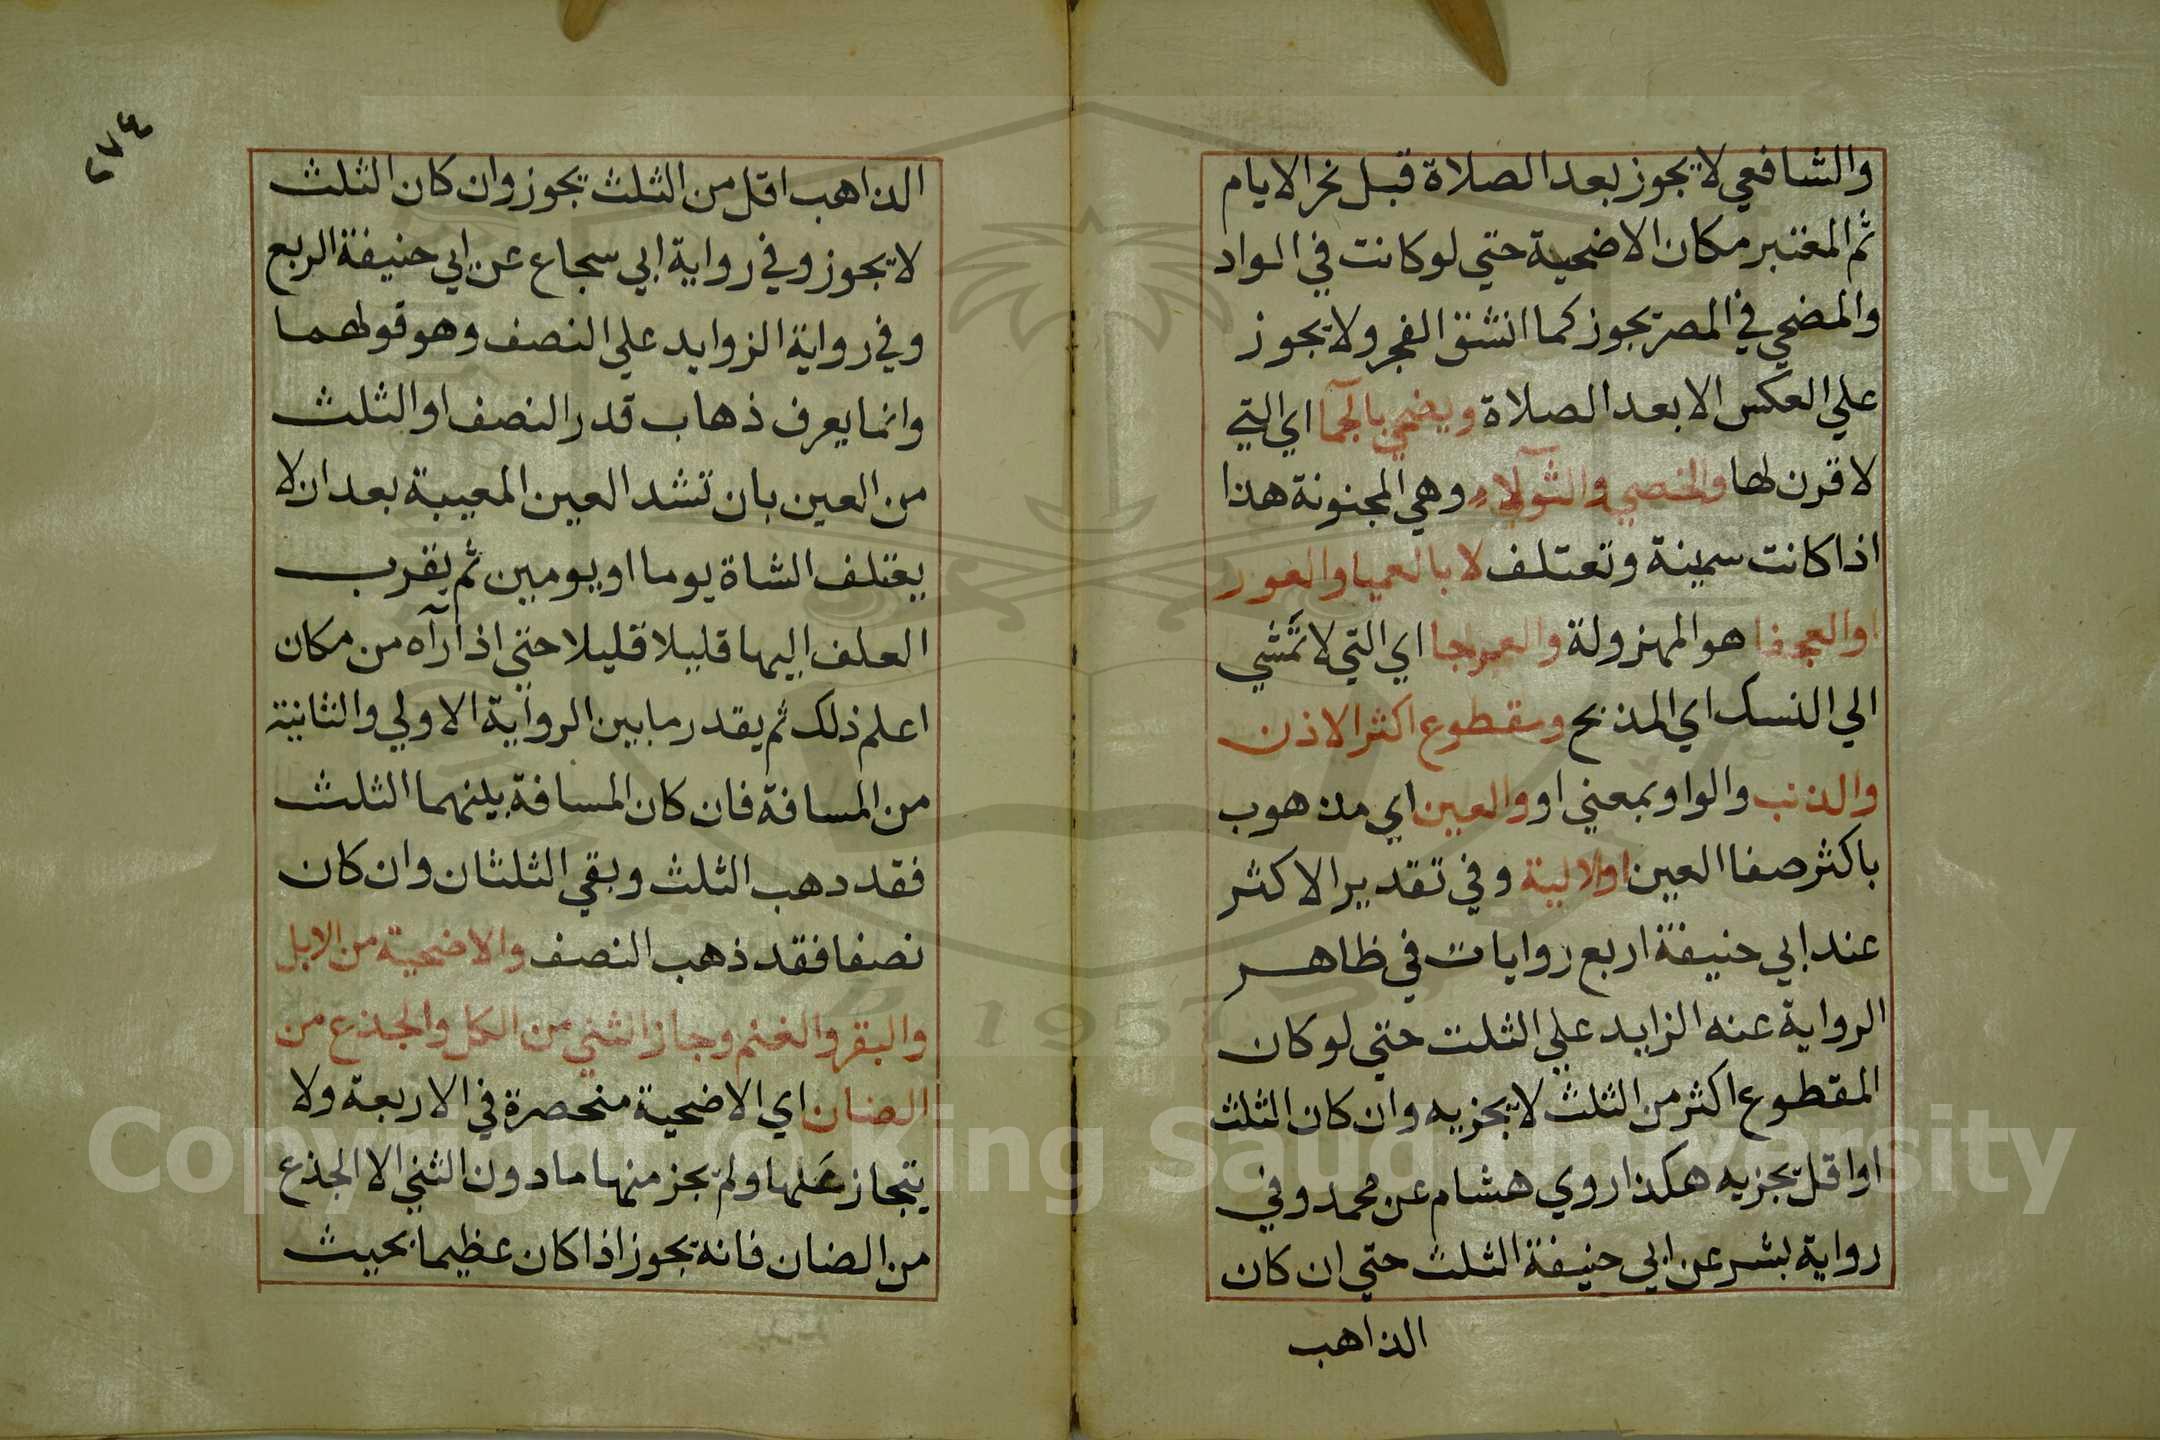 والشافعي لا يجوز بعد الصلاة قبل نحر الايام
ثم المعتبر مكان الاضحية حتي لو كانت في الواد
والمضحي في المصر يجوز كما انشق الفجر ولا يجوز
علي العكس الا بعد الصلاة ويضحي بالجما اي التي
لا قرن لها والخصي والثولاء وهي المجنونة هذا
اذا كانت سمينة وتعتلف لا بالعميا والعور
او العجفا هو المهزولة والعرجا اي التي لا تمشي
الي النسك اي المذبح ومقطوع اكثر الاذن
والذنب والواو بمعني او والعين اي مذهوب
باكثر صفا العين او الالية وفي تقدير الاكثر
عند ابي حنيفة اربع روايات في ظاهر
الرواية عنه الزايد علي الثلث حتي لو كان
المقطوع اكثر من الثلث لا يجزيه وان كان الثلث
او اقل يجزيه هكذا روي هشام عن محمد وفي
رواية بشر عن ابي حنيفة الثلث حتي ان كان
الذاهب
٢٧٤
الذاهب اقل من الثلث يجوز وان كان الثلث
لا يجوز وفي رواية ابي سجاع عن ابي حنيفة الربع
وفي رواية الزوايد علي النصف وهو قولهما
وانما يعرف ذهاب قدر النصف او الثلث
من العين بان تشد العين المعيبة بعد ان لا
يعتلف الشاة يوما او يومين ثم يقرب
العلف اليها قليلا قليلا حتي اذا رآه من مكان
اعلم ذلك ثم يقدر ما بين الرواية الاولي والثانية
من المسافة فان كان المسافة بينهما الثلث
فقد دهب الثلث وبقي الثلثان وان كان
نصفا فقد ذهب النصف والاضحية من الابل
والبقر والغنم وجاز الثني من الكل والجذع من
الضان اي الاضحية منحصرة في الاربعة ولا
يتجاز عنها ولم يجز منها ما دون الثني الا الجذع
من الضان فانه يجوز اذا كان عظيما بحيث
1957
Copyright © King Saud University